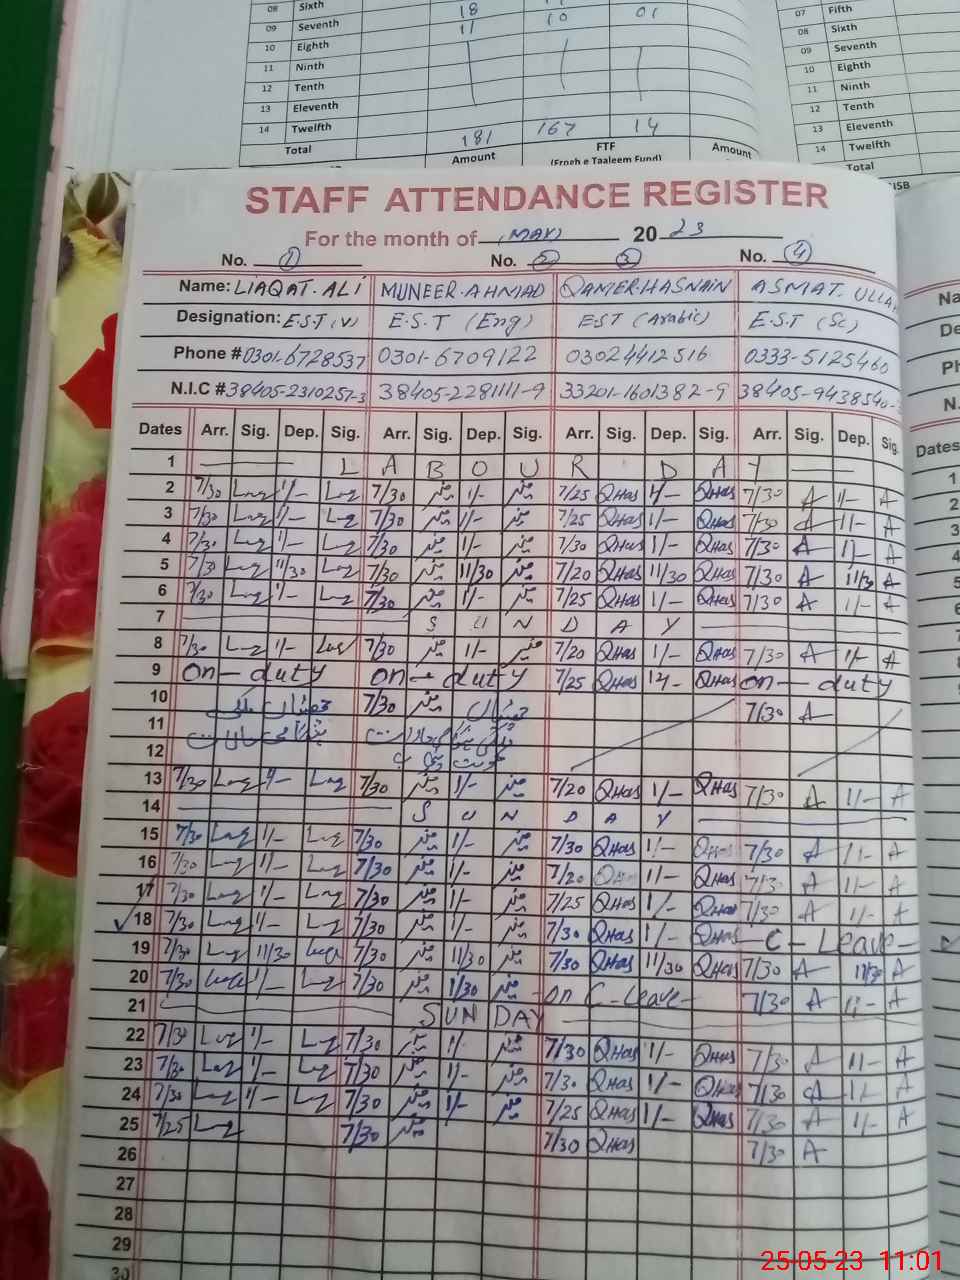 08 Sixth 18 01
09 Seventh 11 10
10 Eighth
11 Ninth
12 Tenth
13 Eleventh
14 Twelfth
Total 181 167 14
Amount FTF Amount
(Frogh e Taaleem Fund)
07 Fifth
08 Sixth
09 Seventh
10 Eighth
11 Ninth
12 Tenth
13 Eleventh
14 Twelfth
Total
ISB
STAFF ATTENDANCE REGISTER
For the month of (MAY) 20 23
No. 1 No. 2 3 No. 4
Name: LIAQAT. ALI MUNEER. AHMAD QAMER. HASNAIN ASMAT. ULLAH
Designation: E.S.T (V) E.S.T (Eng) EST (Arabic) E.S.T (Sc)
Phone # 0301-6728537 0301-6709122 03024412516 0333-5125460
N.I.C # 38405-2310257-3 38405-2281111-9 33201-1601382-9 38405-9438540-
Dates Arr. Sig. Dep. Sig. Arr. Sig. Dep. Sig. Arr. Sig. Dep. Sig. Arr. Sig. Dep. Sig.
1 L A B O U R D A Y
2 7/30 1/- 7/30 منیر 1/- منیر 7/25 QHas 1/- QHas 7/30 A 1/- A
3 7/30 1/- 7/30 منیر 1/- منیر 7/25 QHas 1/- QHas 7/30 A 1/- A
4 7/30 1/- 7/30 منیر 1/- منیر 7/30 QHas 1/- QHas 7/30 A 1/- A
5 7/30 11/30 7/30 منیر 11/30 منیر 7/20 QHas 11/30 QHas 7/30 A 11/30 A
6 7/30 1/- 7/30 منیر 1/- منیر 7/25 QHas 1/- QHas 7/30 A 1/- A
7 S U N D A Y
8 7/30 1/- 7/30 منیر 1/- منیر 7/20 QHas 1/- QHas 7/30 A 1/- A
9 on - duty on - duty 7/25 QHas 1/- QHas on - duty
10 7/30 منیر 7/30 A
11
12
13 7/30 1/- 7/30 منیر 1/- منیر 7/20 QHas 1/- QHas 7/30 A 1/- A
14 S U N D A Y
15 7/30 1/- 7/30 منیر 1/- منیر 7/30 QHas 1/- QHas 7/30 A 1/- A
16 7/30 1/- 7/30 منیر 1/- منیر 7/20 QHas 1/- QHas 7/30 A 1/- A
17 7/30 1/- 7/30 منیر 1/- منیر 7/25 QHas 1/- QHas 7/30 A 1/- A
18 7/30 1/- 7/30 منیر 1/- منیر 7/30 QHas 1/- QHas C - Leave -
19 7/30 11/30 7/30 منیر 11/30 منیر 7/30 QHas 11/30 QHas 7/30 A 11/30 A
20 7/30 1/- 7/30 منیر 1/30 منیر on C-Leave - 7/30 A 1/- A
21 SUN DAY
22 7/30 1/- 7/30 منیر 1/- منیر 7/30 QHas 1/- QHas 7/30 A 1/- A
23 7/30 1/- 7/30 منیر 1/- منیر 7/30 QHas 1/- QHas 7/30 A 1/- A
24 7/30 1/- 7/30 منیر 1/- منیر 7/25 QHas 1/- QHas 7/30 A 1/- A
25 7/25 7/30 منیر 7/30 QHas 7/30 A
26
27
28
29
30
Dates
1
2
3
4
5
6
25-05-23 11:01